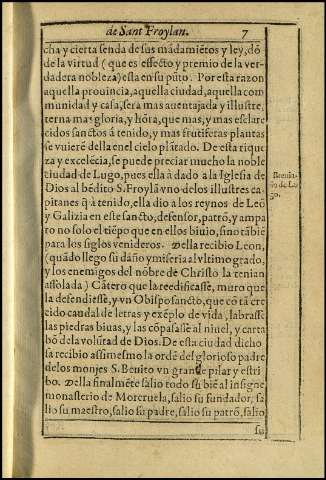 de Sant Froylan. 7
cha y cierta senda de sus mãdamiẽtos y ley, dõ
de la virtud ( que es effecto y premio de la ver-
dadera nobleza) esta en su pũto. Por esta razon
aquella prouincia, aquella ciudad, aquella com
munidad y casa, sera mas auentajada y illustre,
terna mas gloria, y hõra, que mas, y mas esclare
cidos sanctos â tenido, y mas frutiferas plantas
se vuierẽ della enel cielo plãtado. De esta rique
za y excelẽcia, se puede preciar mucho la noble
ciudad de Lugo, pues ella à dado a la Iglesia de
Dios al bẽdito S. Froylã vno delos illustres ca-
pitanes q̃ â tenido, ella dio a los reynos de Leõ
y Galizia en este sancto, defensor, patrõ, y ampa
ro no solo el tiẽpo que en ellos biuio, sino tãbiẽ
para los siglos venideros. Della recibio Leon,
(quãdo llego su daño y miseria al vltimo grado,
y los enemigos del nõbre de Christo la tenian
assolada) Cãtero que la reedificasse, muro que
la defendiesse, y vn Obispo sancto, que cõ tã cre
cido caudal de letras y exẽplo de vida, labrasse
las piedras biuas, y las cõpasasse al niuel, y carta
bõ de la volũtad de Dios. De esta ciudad dicho
sa recibio assimesmo la ordẽ del glorioso padre
delos monjes S. Benito vn grande pilar y estri
bo. Della finalmẽte salio todo su biẽ al insigne
monasterio de Moreruela, salio su fundador, sa
lio su maestro, salio su padre, salio su patrõ, salio
su
Breuia-
rio de Lu
go.